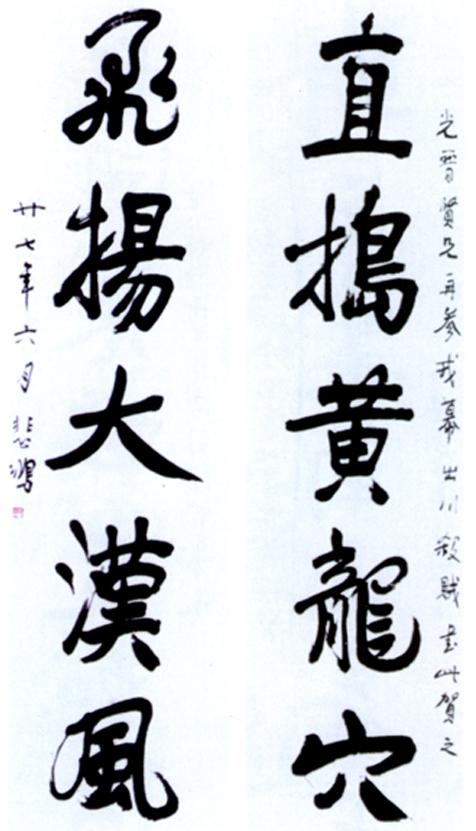 光晋贤兄再参戎幕出川殺賊書此賀之
直搗黄龍穴
飛揚大漢風
廿七年六月悲鴻